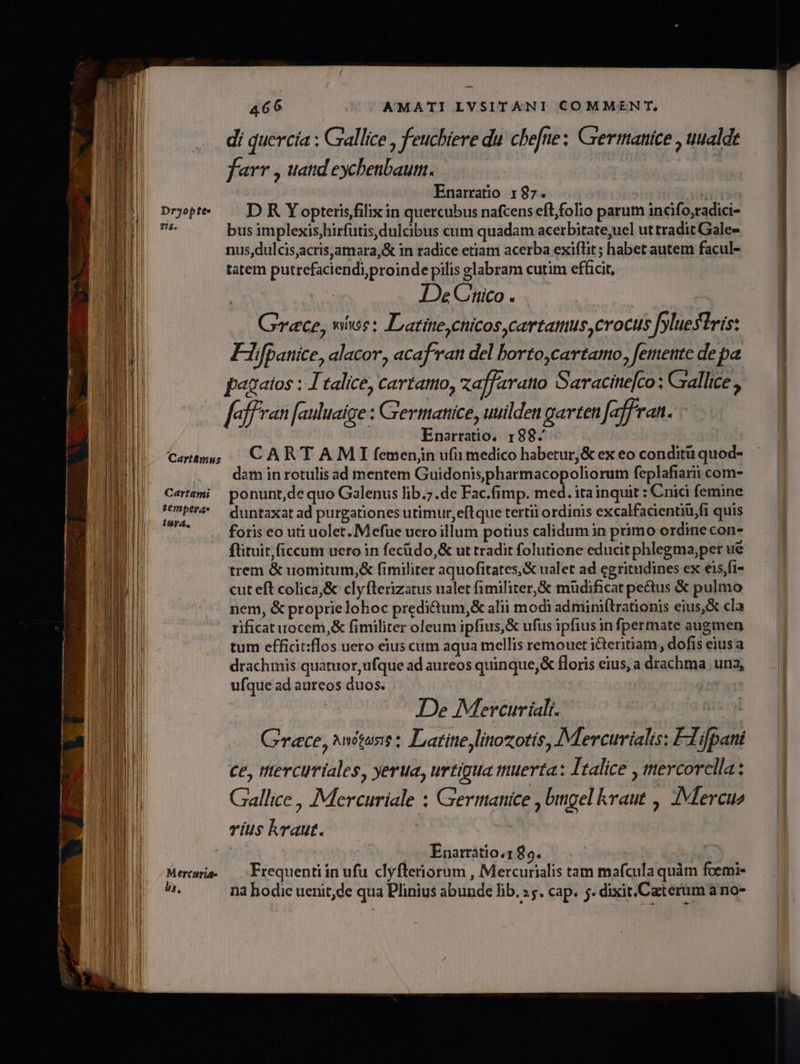 466 AMATI LVSITANI COMMENT.
di quercia : Gallice, feuchiere du chesne : Germanice, uualdt
farr, uand eychenbaum.
Enarratio 187.
Dryopte-
ris.
DRYopteris, filix in quercubus naſcens eſt, folio parum inciſo, radici-
bus implexis, hirſutis, dulcibus cum quadam acerbitate, uel ut tradit Gale-
nus, dulcis, acris, amara, & in radice etiam acerba exiſtit; habet autem facul-
tatem putrefaciendi, proinde pilis glabram cutim efficit,
De Cnico.
Græce, κνῖκος : Latine, cnicos, cartamus, crocus sylueſtris:
Hiſpanice, alacor, açafran del horto, cartamo, ſemente de pa
pagaios : Italice, cartamo, zaffarano Saracineſco : Gallice,
ſaffran ſauluaige : Germanice, uuilden garten ſaffran.
Enarratio. 188.
Cartamus
CARTAMI ſemen, in uſu medico habetur, & ex eo conditū quod-
dam in rotulis ad mentem Guidonis, pharmacopoliorum ſeplaſiarii com-
Cartami
tempera-
tura.
ponunt, de quo Galenus lib. 7. de Fac. ſimp. med. ita inquit : Cnici ſemine
duntaxat ad purgationes utimur, eſtque tertii ordinis excalfacientiū, ſi quis
foris eo uti uolet. Meſue uero illum potius calidum in primo ordine con-
ſtituit, ſiccum uero in ſecūdo, & ut tradit ſolutione educit phlegma, per uē
trem & uomitum, & ſimiliter aquoſitates, & ualet ad egritudines ex eis, ſi-
cut eſt colica, & clyſterizatus ualet ſimiliter, & mūdificat pectus & pulmo
nem, & proprie lohoc predictum, & alii modi adminiſtrationis eius, & cla
rificat uocem, & ſimiliter oleum ipſius, & uſus ipſius in ſpermate augmen
tum efficit: flos uero eius cum aqua mellis remouet icteritiam, doſis eius a
drachmis quatuor, uſque ad aureos quinque, & floris eius, a drachma una,
uſque ad aureos duos.
De Mercuriali.
Græce, λινόζωστις : Latine, linozotis, Mercurialis : Hiſpani
ce, mercuriales, yerua, urtigua muerta : Italice, mercorella :
Gallice, Mercuriale : Germanice, bingel kraut, Mercu-
rius kraut.
Enarratio. 189.
Mercuria-
lis.
Frequenti in uſu clyſteriorum, Mercurialis tam maſcula quàm fœmi-
na hodie uenit, de qua Plinius abunde lib. 25. cap. 5. dixit. Cæterum a no-